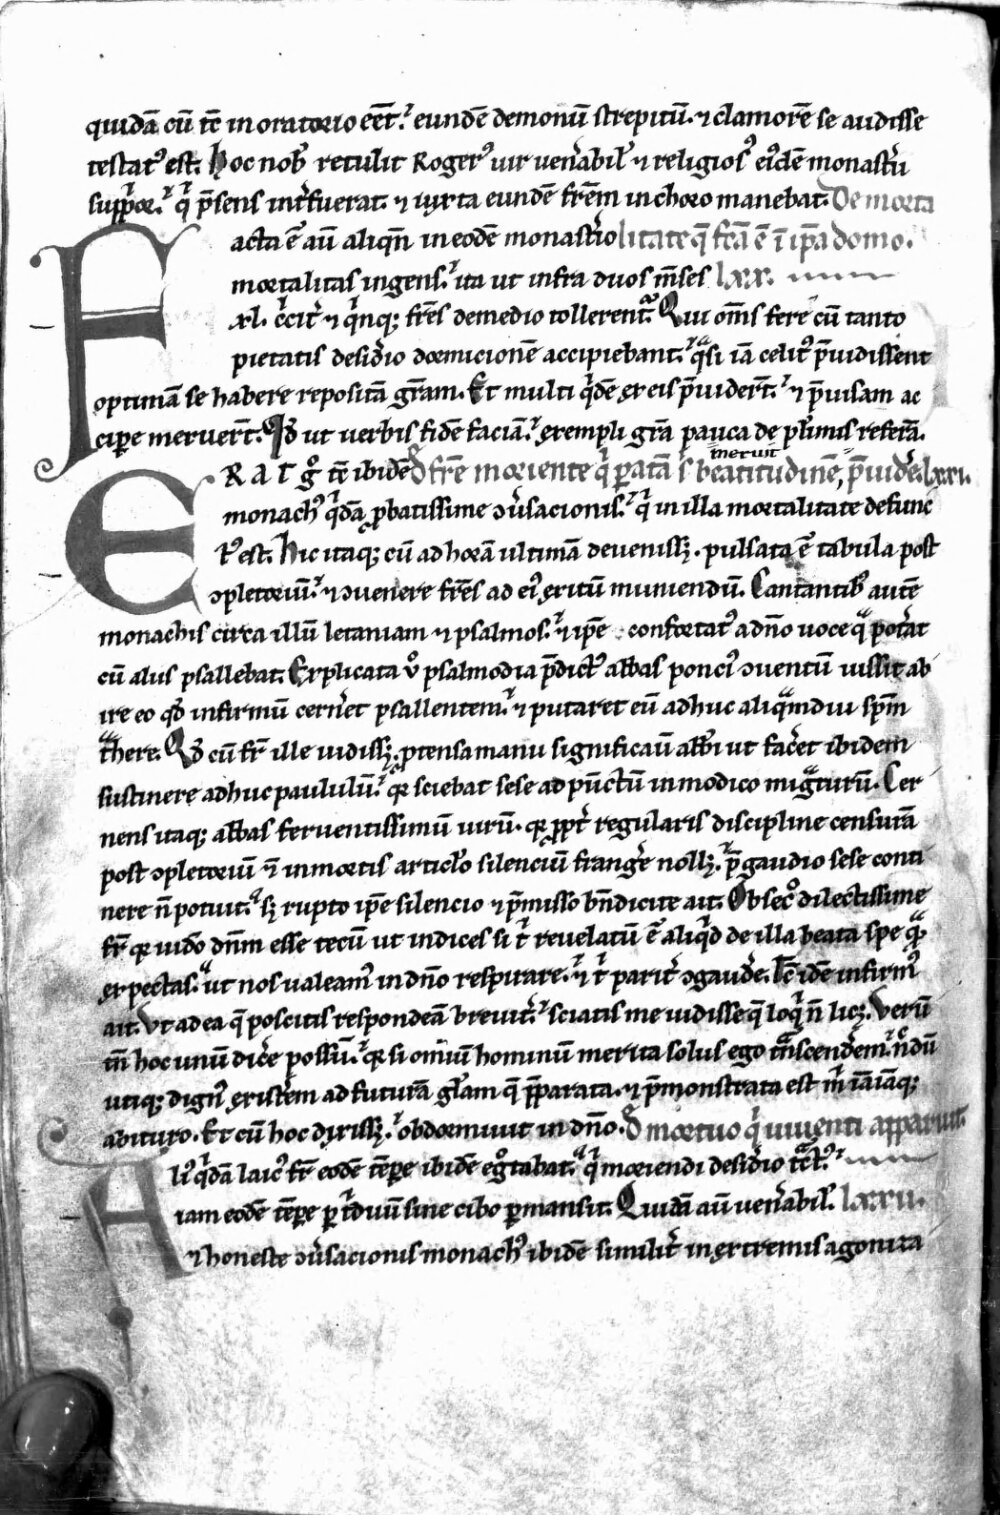 quidā cū tc̄ in oratorio eēt. eundē demonū strepitū. ⁊ clamorē se audisse
testatꝰ est. hoc nob̄ retulit Rogerꝰ uir uen̄abil̄ ⁊ religiosꝰ eiꝰdē monast̄ii
suppor. qⁱ p̄sens int̄fuerat. ⁊ iuxta eundē fr̄em in choro manebat. De morta
acta ē aū aliqn̄ in eodē monast̄io litate q̄ fc̄a ē ī ip̄a domo.
mortalitas ingens. ita ut infra duos m̄ses lxx.
xl. cⁱcit̄ ⁊ qⁱnq; fr̄es de medio tollerent̄. Qui om̄s fere cū tanto
pietatis desid̄io dormicionē accipiebant. qᵃsi iā celitꝰ p̄uidissent
optimā se habere repositā gr̄am. Et multi qⁱdē ex eis p̄uider̄t. ⁊ p̄uisam ac
cip̄e meruer̄t. Qd̄ ut uerbis fidē faciā. exempli gr̄a pauca de pl̄imis referā.
meruit
ERAT g̊ tc̄ ibidē D̄ fr̄e moriente qⁱ paratā s̄ beatitudinē, p̄uidē. lxxi.
monachꝰ qⁱdā ꝓbatissime ↄūsacionis. qⁱ in illa mortalitate defunc
tꝰ est. Hic itaq; cū ad horā ultimā deueniss;. pulsata ē tabula post
ↄpletoriū. ⁊ ↄuenere fr̄es ad eiꝰ exitū muniendū. Cantantibꝰ autē
monachis circa illū letaniam ⁊ psalmos. ⁊ ip̄e confortatꝰ a dn̄o uoce qᵃ pot̄at
cū aliis psallebat. Explicata ů psalmodia p̄dictꝰ abbas ponciꝰ ↄuentū iussit ab
ire eo qd̄ infirmū cern̄et psallentem. ⁊ putaret eū adhuc aliqᵃmdiu spm̄
tᵃhere. Qd̄ cū fr̄ ille uidiss;. ꝓtensa manu significaū abb̄i ut fac̄et ibidem
sustinere adhuc paululū. qꝛ sciebat sese ad pūctū in modico migᵃturū. Cer
nens itaq; abbas feruentissimū uirū. qꝛ ꝓpt̄ regularis discipline censurā
post ↄpletoriū ī in mortis articl̄o silenciū frangēe noll;. p̄ gaudio sese conti
nere n̄ potuit. s; rupto ip̄e silencio ⁊ p̄misso bn̄dicite ait. Obsecꝰ dilectissime
fr̄ qꝛ uido dn̄m esse tecū ut indices si tⁱ reuelatū ē aliqⁱd de illa beata spe qᵃ
expectas. ut nos ualeamꝰ in dn̄o respirare. ⁊ tⁱ parit̄ ↄgaudēe. Tc̄ idē infirmꝰ
ait. Vt ad ea q̄ poscitis respondeā breuit̄. sciatis me uidisse q̄ loqⁱ n̄ lic;. Verū
tm̄ hoc unū dic̄e possū. qꝛ si om̄iū hominū merita solus ego tᵃnscend̄em. n̄dū
utiq; dignꝰ exist̄em ad futurā gl̄am q̄ p̄parata. ⁊ p̄monstrata est m̄ iā iāq;
abituro. Et cū hoc dixiss;. obdormiuit in dn̄o. D̄ mortuo qⁱ uiuenti apparuit.
Alꝰ qⁱdā laicꝰ fr̄ eodē tēpe ibidē eg̊tabat. qⁱ moriendi desid̄io tᵃctꝰ.
iam eodē tēpe p tⁱduū sine cibo pmansit. Quidā aū uen̄abil̄. lxxii.
⁊ honeste ↄūsacionis monachꝰ ibidē similit̄ in extremis agoniza